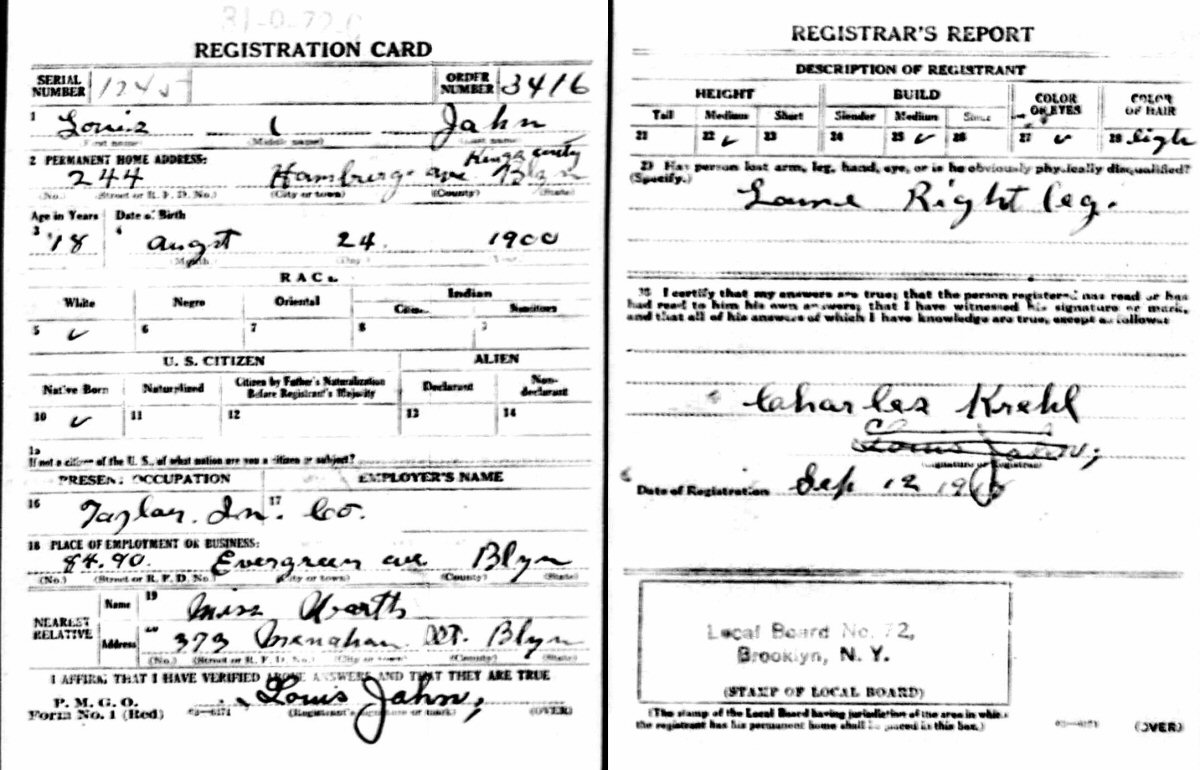 REGISTRATION CARD
SERIAL NUMBER 1245 ORDER NUMBER 3416
1 Louis Jahn
(First name) (Middle name) (Last name)
2 PERMANENT HOME ADDRESS: Kings County
244 Hamburg ave Blyn
(No.) (Street or R. F. D. No.) (City or town) (County) (State)
Age in Years Date of Birth
3 18 4 Augst 24. 1900
(Month.) (Day.) (Year.)
RACE
White Negro Oriental Indian
Citizen Noncitizen
5 ✓ 6 7 8 9
U. S. CITIZEN ALIEN
Native Born Naturalized Citizen by Father's Naturalization Before Registrant's Majority Declarant Non-declarant
10 ✓ 11 12 13 14
15
If not a citizen of the U. S., of what nation are you a citizen or subject?
PRESENT OCCUPATION EMPLOYER'S NAME
16 Taylor. In. 17 Co.
18 PLACE OF EMPLOYMENT OR BUSINESS:
84.90 Evergreen ave Blyn
(No.) (Street or R. F. D. No.) (City or town) (County) (State)
NEAREST RELATIVE
Name 19 Miss
Address 20 373 Menahan St. Blyn
(No.) (Street or R. F. D. No.) (City or town) (County) (State)
I AFFIRM THAT I HAVE VERIFIED ABOVE ANSWERS AND THAT THEY ARE TRUE
P. M. G. O.
Form No. 1 (Red) 03—6171 Louis Jahn,
(Registrant's signature or mark) (OVER)
REGISTRAR'S REPORT
DESCRIPTION OF REGISTRANT
HEIGHT BUILD COLOR OF EYES COLOR OF HAIR
Tall Medium Short Slender Medium Stout
21 22 ✓ 23 24 25 ✓ 26 27 ✓ 28 ligh
29 Has person lost arm, leg, hand, eye, or is he obviously physically disqualified?
(Specify.)
Lame Right leg.
30 I certify that my answers are true; that the person registered has read or has
had read to him his own answers; that I have witnessed his signature or mark,
and that all of his answers of which I have knowledge are true, except as follows:
Charles Krehl
(Signature of Registrar)
Date of Registration Sep 12 1918
Local Board No. 72,
Brooklyn, N. Y.
(STAMP OF LOCAL BOARD)
(The stamp of the Local Board having jurisdiction of the area in which
the registrant has his permanent home shall be placed in this box.)
03—6171 (OVER)